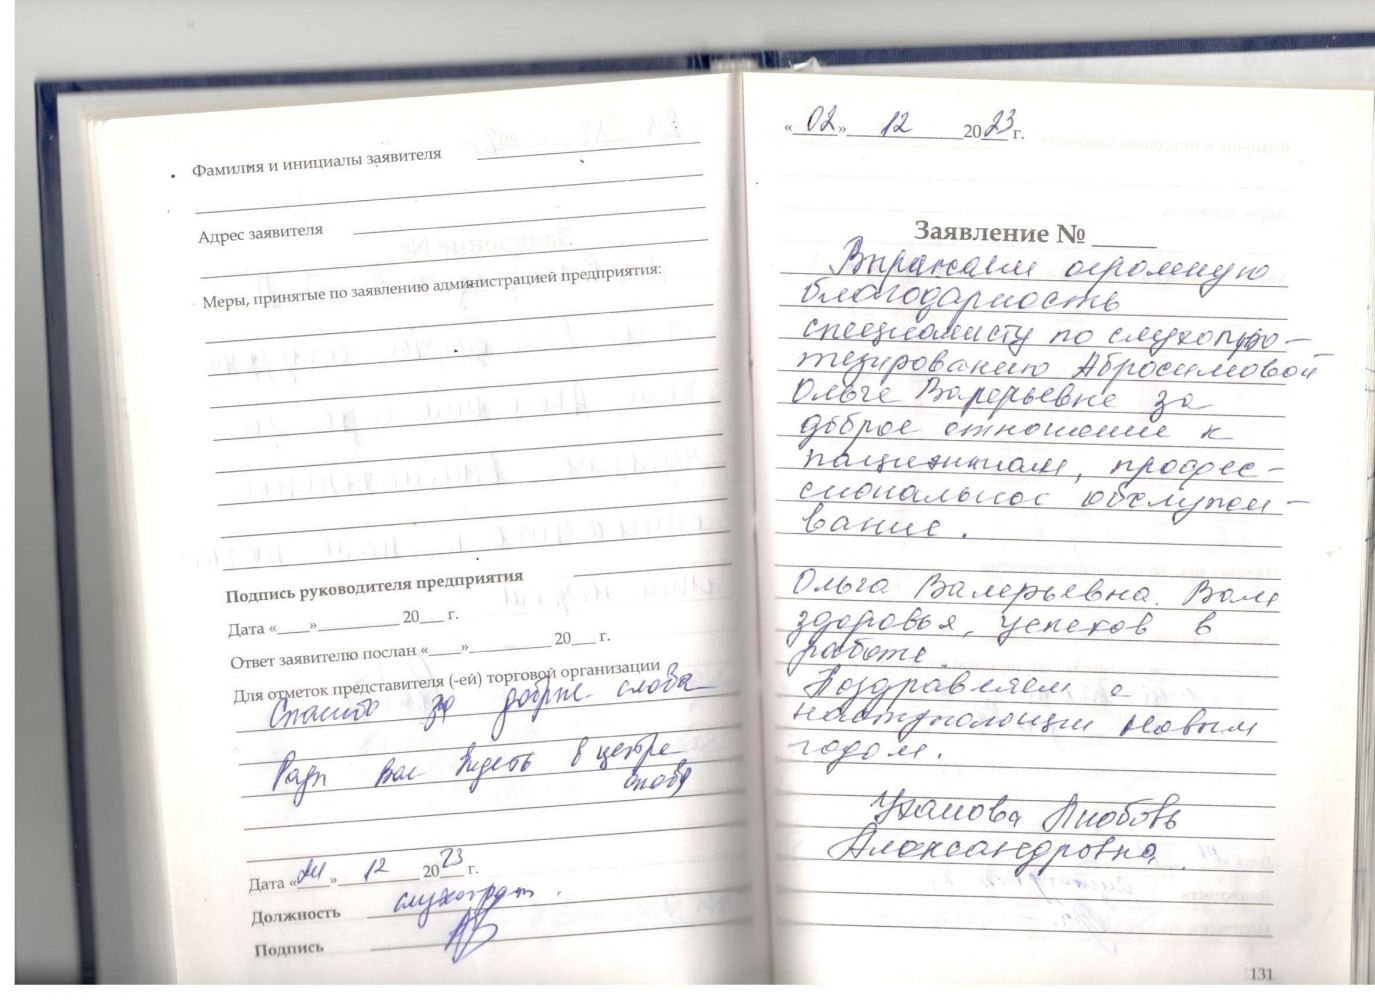 Фамилия и инициалы заявителя
Адрес заявителя
Меры, принятые по заявлению администрацией предприятия:
Подпись руководителя предприятия
Дата «___»__________ 20___ г.
Ответ заявителю послан «____»__________ 20___ г.
Для отметок представителя (-ей) торговой организации
Спасибо за добрые слова
Рады Вас видеть в центре
снова
Дата « » 12 2023 г.
Должность
Подпись
«02» 12 2023 г.
Заявление № _____
Выражаем огромную
благодарность
специалисту по слухопро-
тезированию Абросимовой
Ольге Валерьевне за
доброе отношение к
пациентам, профес-
сиональное обслужи-
вание.
Ольга Валерьевна. Вам
здоровья, успехов в
работе.
Поздравляем с
наступающим Новым
годом.
Любовь
Александровна.
131